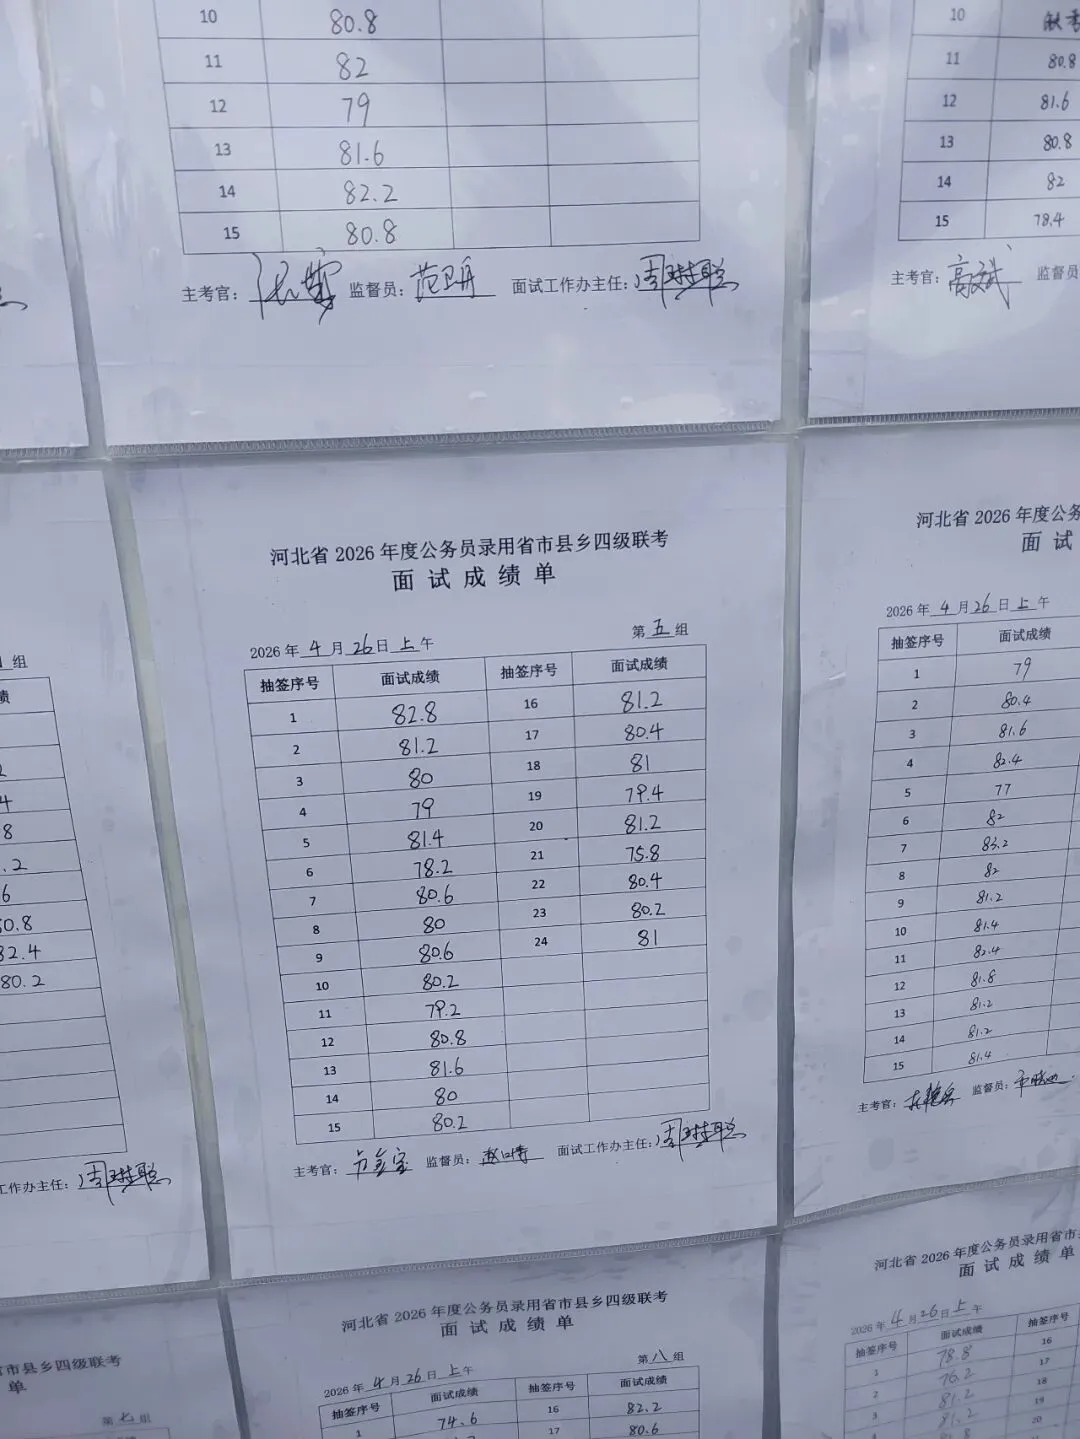 10 80.8
11 82
12 79
13 81.6
14 82.2
15 80.8
主考官: 监督员: 范卫丹 面试工作办主任: 周琳聪
10 缺考
11 80.8
12 81.6
13 80.8
14 82
15 78.4
主考官: 高斌 监督员
组
绩
2
4
8
.2
6
80.8
82.4
80.2
工作办主任: 周琳聪
河北省 2026 年度公务员录用省市县乡四级联考
面试成绩单
2026 年 4 月 26 日 上 午 第 五 组
抽签序号 面试成绩 抽签序号 面试成绩
1 82.8 16 81.2
2 81.2 17 80.4
3 80 18 81
4 79 19 79.4
5 81.4 20 81.2
6 78.2 21 75.8
7 80.6 22 80.4
8 80 23 80.2
9 80.6 24 81
10 80.2
11 79.2
12 80.8
13 81.6
14 80
15 80.2
主考官: 监督员: 面试工作办主任: 周琳聪
河北省 2026 年度公务
面 试
2026 年 4 月 26 日 上 午
抽签序号 面试成绩
1 79
2 80.4
3 81.6
4 82.4
5 77
6 82
7 83.2
8 82
9 81.2
10 81.4
11 82.4
12 81.8
13 81.2
14 81.2
15 81.4
主考官: 监督员:
省市县乡四级联考
单
第 七 组
河北省 2026 年度公务员录用省市县乡四级联考
面试成绩单
2026 年 4 月 26 日 上 午 第 八 组
抽签序号 面试成绩 抽签序号 面试成绩
1 74.6 16 82.2
17 80.6
河北省 2026 年度公务员录用省市
面试成绩单
2026 年 4 月 26 日 上 午
抽签序号 面试成绩 抽签序号
1 78.8 16
2 76.2 17
3 81.2 18
81.2 19
20